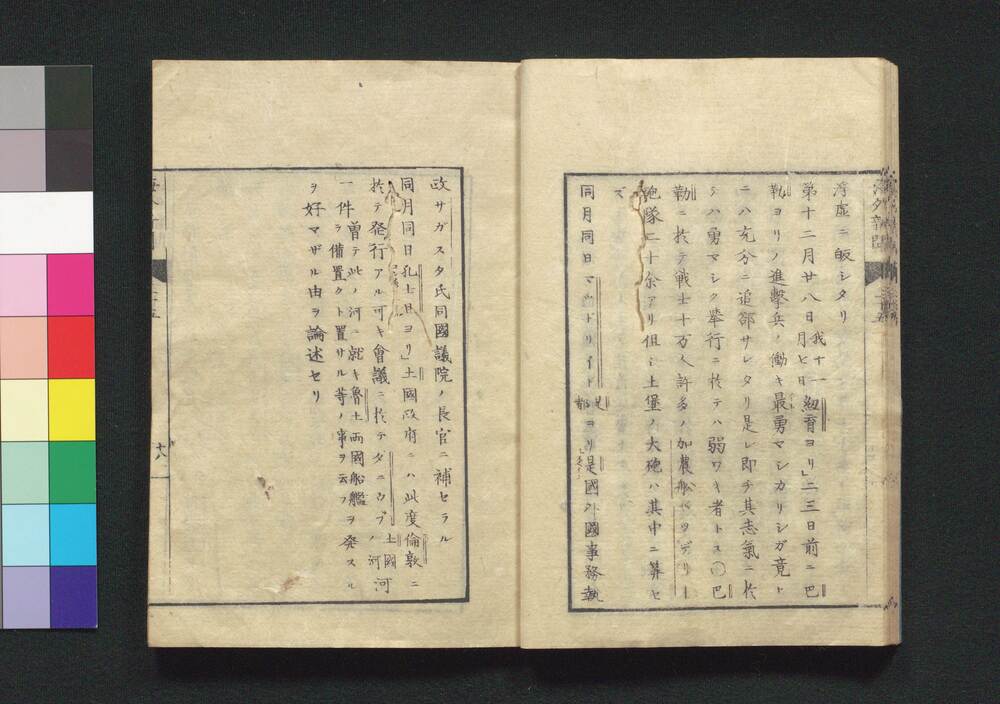 浮虚ニ皈シタリ
第十二月廿八日我十一月七日紐育ヨリ」二三日前ニ巴
勒ヨリノ進撃兵ノ働キ最勇マシカリシガ竟ト
ニハ充分ニ追部サレタリ是レ即チ其志氣ニ於
テハ勇マシク挙行ニ於テハ弱ワキ者トス〇巴
勒ニ於テ戦士十万人許多ノ加農舩バッテリー
砲隊二十余アリ但シ土堡ノ大砲ハ其中ニ算セ
ズ
同月同日マッドリイト是都ヨリ是国外國事務執
政サガスタ氏同國議院ノ長官ニ補セラル
同月同日孔士旦ヨリ」土國政府ニハ此度倫敦ニ
於テ発行アル可キ會議ニ於テダニウブ土國ノ河河
一件曽テ此ノ河ニ就キ魯土両國船艦ヲ発スル
ヲ備置クト置サル等ノ事ヲ云フ
ヲ好マザル由ヲ論述セリ
海外新聞
十八